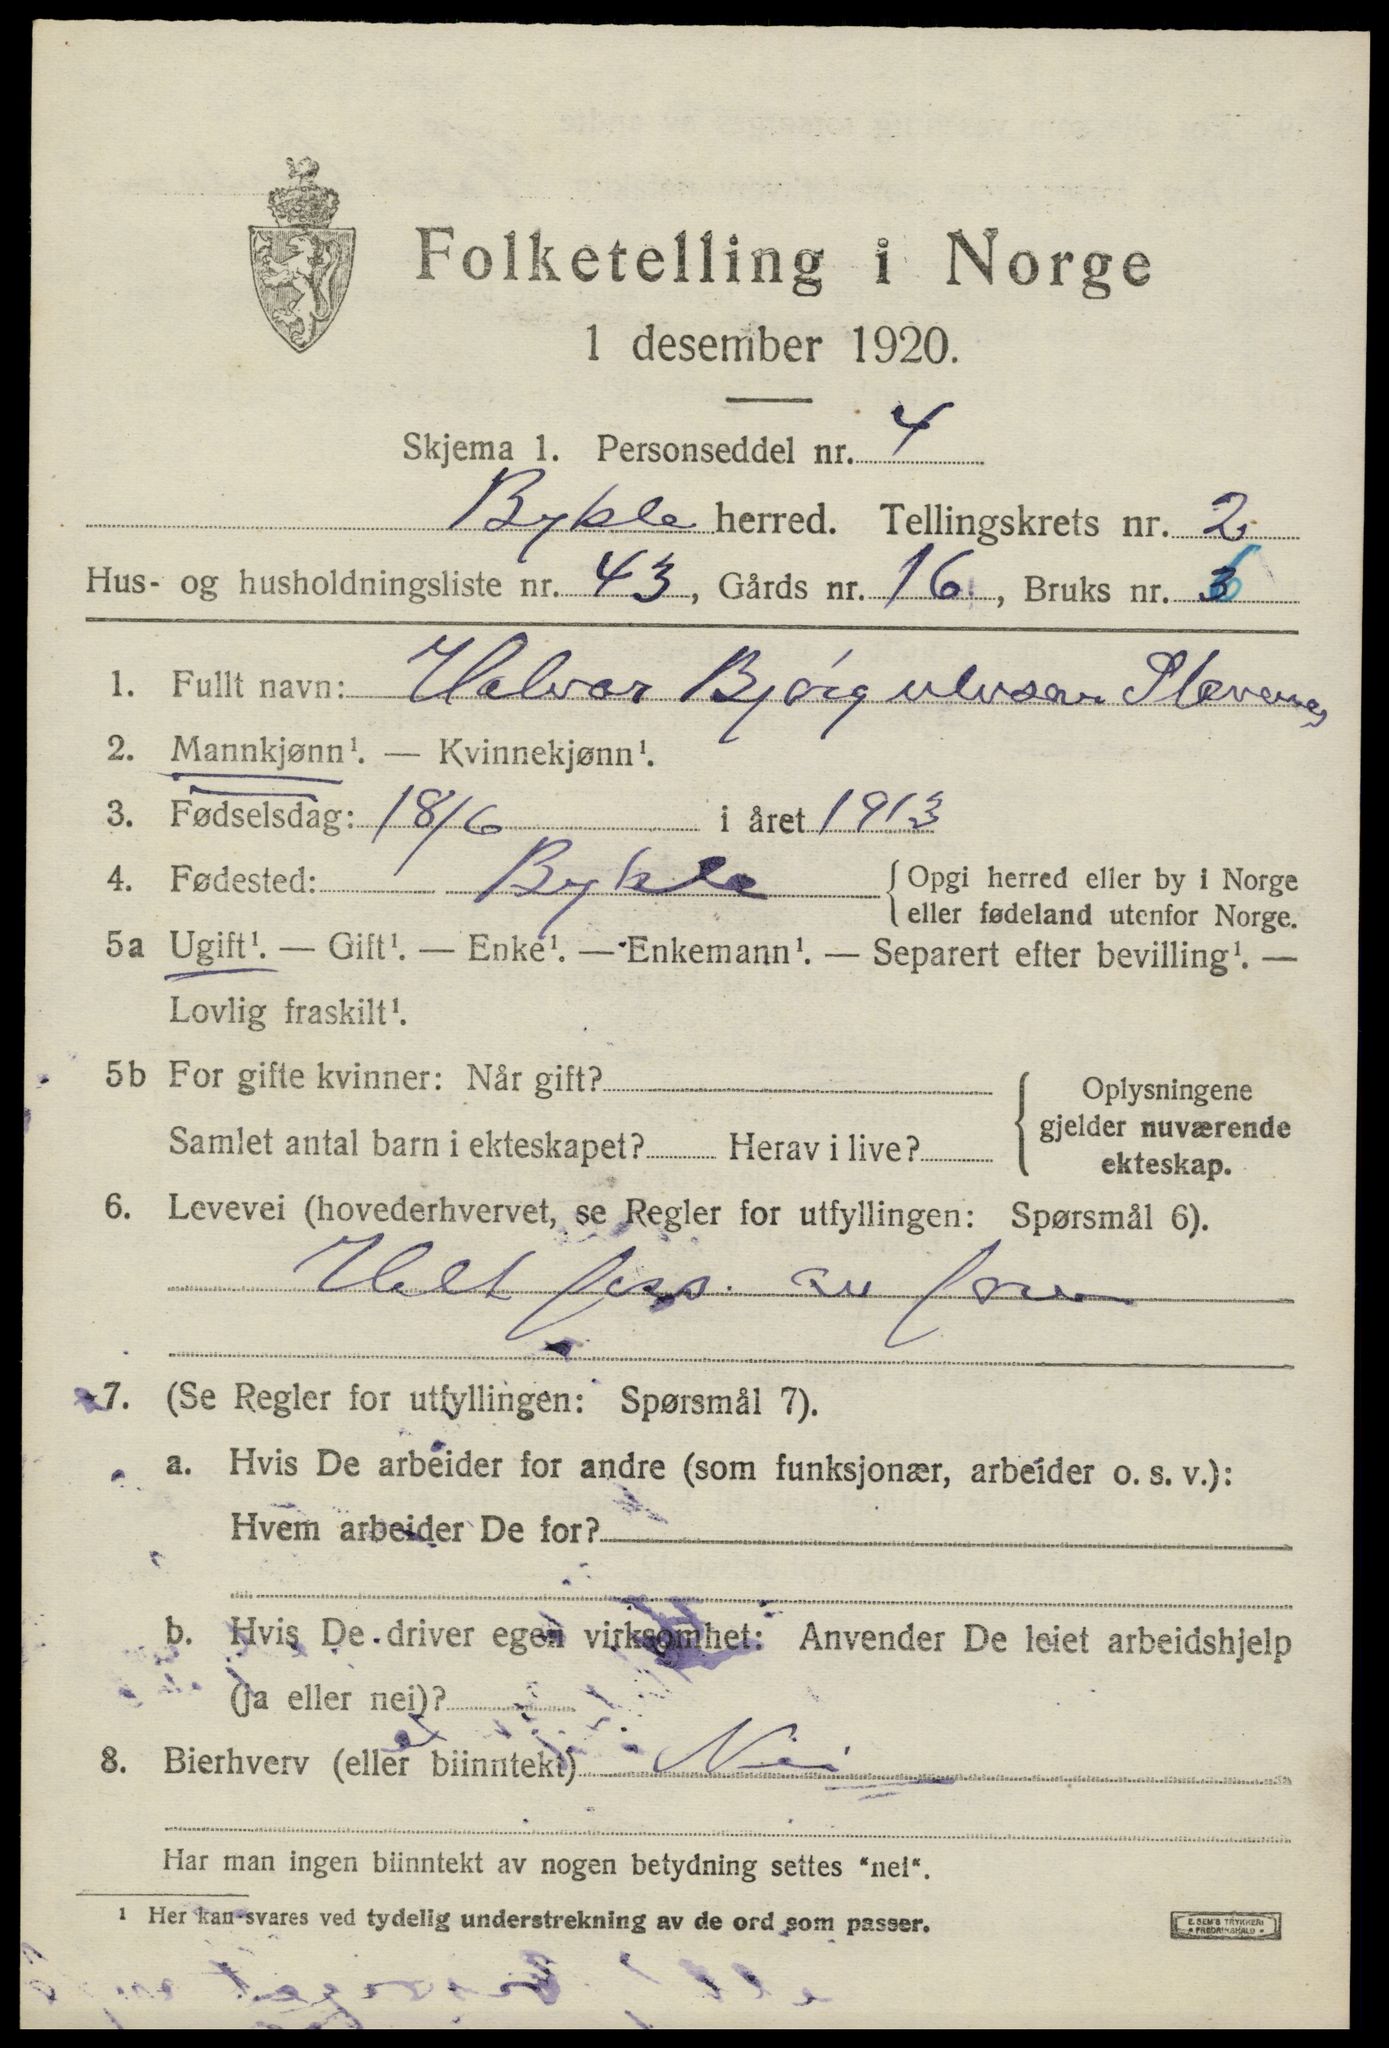 Folketelling i Norge
1 desember 1920.
Skjema 1. Personseddel nr. 4
Bykle herred. Tellingskrets nr. 2
Hus- og husholdningsliste nr. 43, Gårds nr. 16, Bruks nr. 3 6
1. Fullt navn: Halvor Bjørgulvsen
2. Mannkjønn¹. — Kvinnekjønn¹.
3. Fødselsdag: 18/6 i året 1913
4. Fødested: Bykle {Opgi herred eller by i Norge
eller fødeland utenfor Norge.
5a Ugift¹. — Gift¹. — Enke¹. — Enkemann¹. — Separert efter bevilling¹. —
Lovlig fraskilt¹.
5b For gifte kvinner: Når gift?
Samlet antal barn i ekteskapet? Herav i live?
{ Oplysningene
gjelder nuværende
ekteskap.
6. Levevei (hovederhvervet, se Regler for utfyllingen: Spørsmål 6).
Helt fors. av faren
7. (Se Regler for utfyllingen: Spørsmål 7).
a. Hvis De arbeider for andre (som funksjonær, arbeider o. s. v.):
Hvem arbeider De for?
b. Hvis De driver egen virksomhet: Anvender De leiet arbeidshjelp
(ja eller nei)?
8. Bierhverv (eller biinntekt) Nei
Har man ingen biinntekt av nogen betydning settes "nei".
¹ Her kan svares ved tydelig understrekning av de ord som passer.
E. SEM'S TRYKKERI
• FREDRIKSHALD •